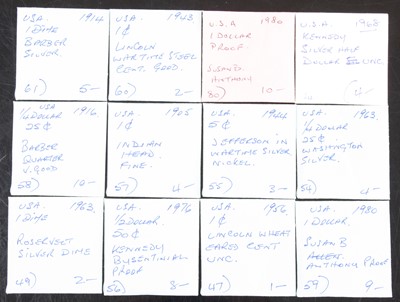 USA. 1914
1 DIME
BARBER
SILVER.
61) 5-
USA. 1943
1¢
LINCOLN
WARTIME STEEL
CENT. GOOD.
60) 2-
U.S.A 1980
1 DOLLAR
PROOF
SUSAN B.
ANTHONY
80) 10-
U.S.A. 1968
KENNEDY
SILVER HALF
DOLLAR UNC.
4-
USA 1916.
1/4 DOLLAR
25¢
BARBER
QUARTER
V. GOOD
58) 10-
USA. 1905
1¢
INDIAN
HEAD.
FINE.
57) 4-
USA. 1944
5¢
JEFFERSON
WARTIME SILVER
NICKEL.
55) 3-
USA. 1963.
1/4 DOLLAR
25¢
WASHINGTON
SILVER.
54) 4-
USA. 1963.
1 DIME
ROSERVELT
SILVER DIME
49) 2-
USA. 1976
1/2 DOLLAR.
50¢
KENNEDY
BYSENTINIAL
PROOF
56) 8-
USA. 1956
1¢
LINCOLN WHEAT
EARED CENT
UNC.
47) 1-
USA. 1980
1 DOLLAR.
SUSAN B
ANTHONY PROOF
59) 9-